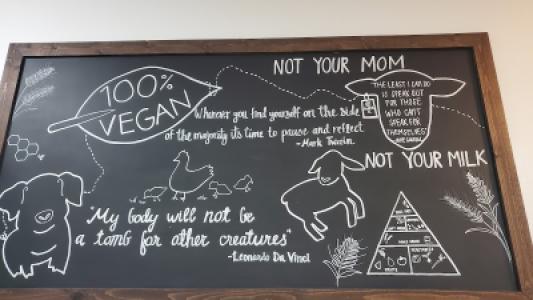 100%
VEGAN
NOT YOUR MOM
Whenever you find yourself on the side
of the majority its time to pause and reflect
-Mark Twain
THE LEAST I CAN DO
IS SPEAK OUT
FOR THOSE
WHO CAN'T
SPEAK FOR
THEMSELVES"
NOT YOUR MILK
"My body will not be
a tomb for other creatures"
-Leonardo Da Vinci
FRUITS